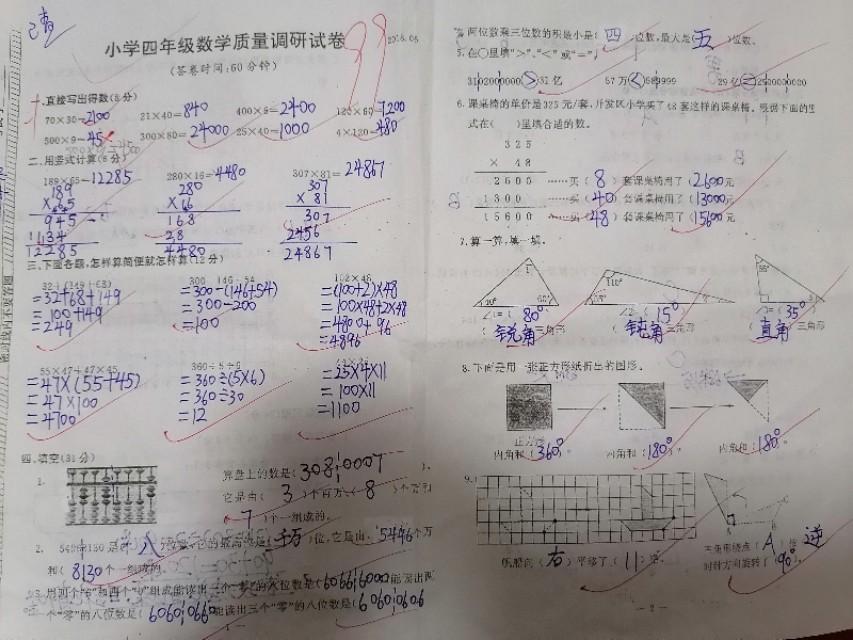 小学四年级数学质量调研试卷
99
(答卷时间:60分钟)
一.直接写出得数(8分)
70×30=2100 21×40=840 400×6=2400 120×60=7200
500×9=45 300×80=24000 25×40=1000 4×120=480
二.用竖式计算(6分)
189×65=12285 280×16=4480 307×81=24867
189 280 307
×65 ×16 ×81
945 168 307
1134 28 2456
12285 4480 24867
三.下面各题,怎样算简便就怎样算(12分)
32+(149+68) 300-146-54 102×48
=32+68+149 =300-(146+54) =(100+2)×48
=100+149 =300-200 =100×48+2×48
=249 =100 =4800+96
=4896
55×47+47×45 360÷5÷6
=47×(55+45) =360÷(5×6) =25×4×11
=47×100 =360÷30 =100×11
=4700 =12 =1100
四.填空(31分)
1. 算盘上的数是(3080007).
它是由(3)个百万,(8)个万和
(7)个一组成的.
2. 八 千万 位,它是由(5446个万
和(8130个一组成的.
3.用四个"6"和四个"0"组成能读出一个"零"的八位数是(60666000能读出两
个"零"的八位数是(60600660能读出三个"零"的八位数是(60600606
两位数乘三位数的积最小是(四)位数,最大是(五)位数。
5.在○里填">"、"<"或"="。
3102000000>31亿 57万<589999 29亿=2900000000
6.课桌椅的单价是325元/套,开发区小学买了48套这样的课桌椅。根据下面的竖
式在( )里填合适的数。
325
× 48
2600 ……买(8)套课桌椅用了(2600元
1300 ……买(40)套课桌椅用了(13000元
15600 ……买(48)套课桌椅用了(15600元
7.算一算,填一填。
∠1=(80° ∠2=(15° (35°
(锐角三角形 (钝角三角形 (直角三角形
8.下面是用一张正方形纸折出的图形。
正方形
内角和(360°。 内角和(180°。 内角和(180°。
9.
帆船向(右)平移了(11)格。
三角形绕点(A)按逆
时针方向旋转了(90°。
- 1 -
- 2 -